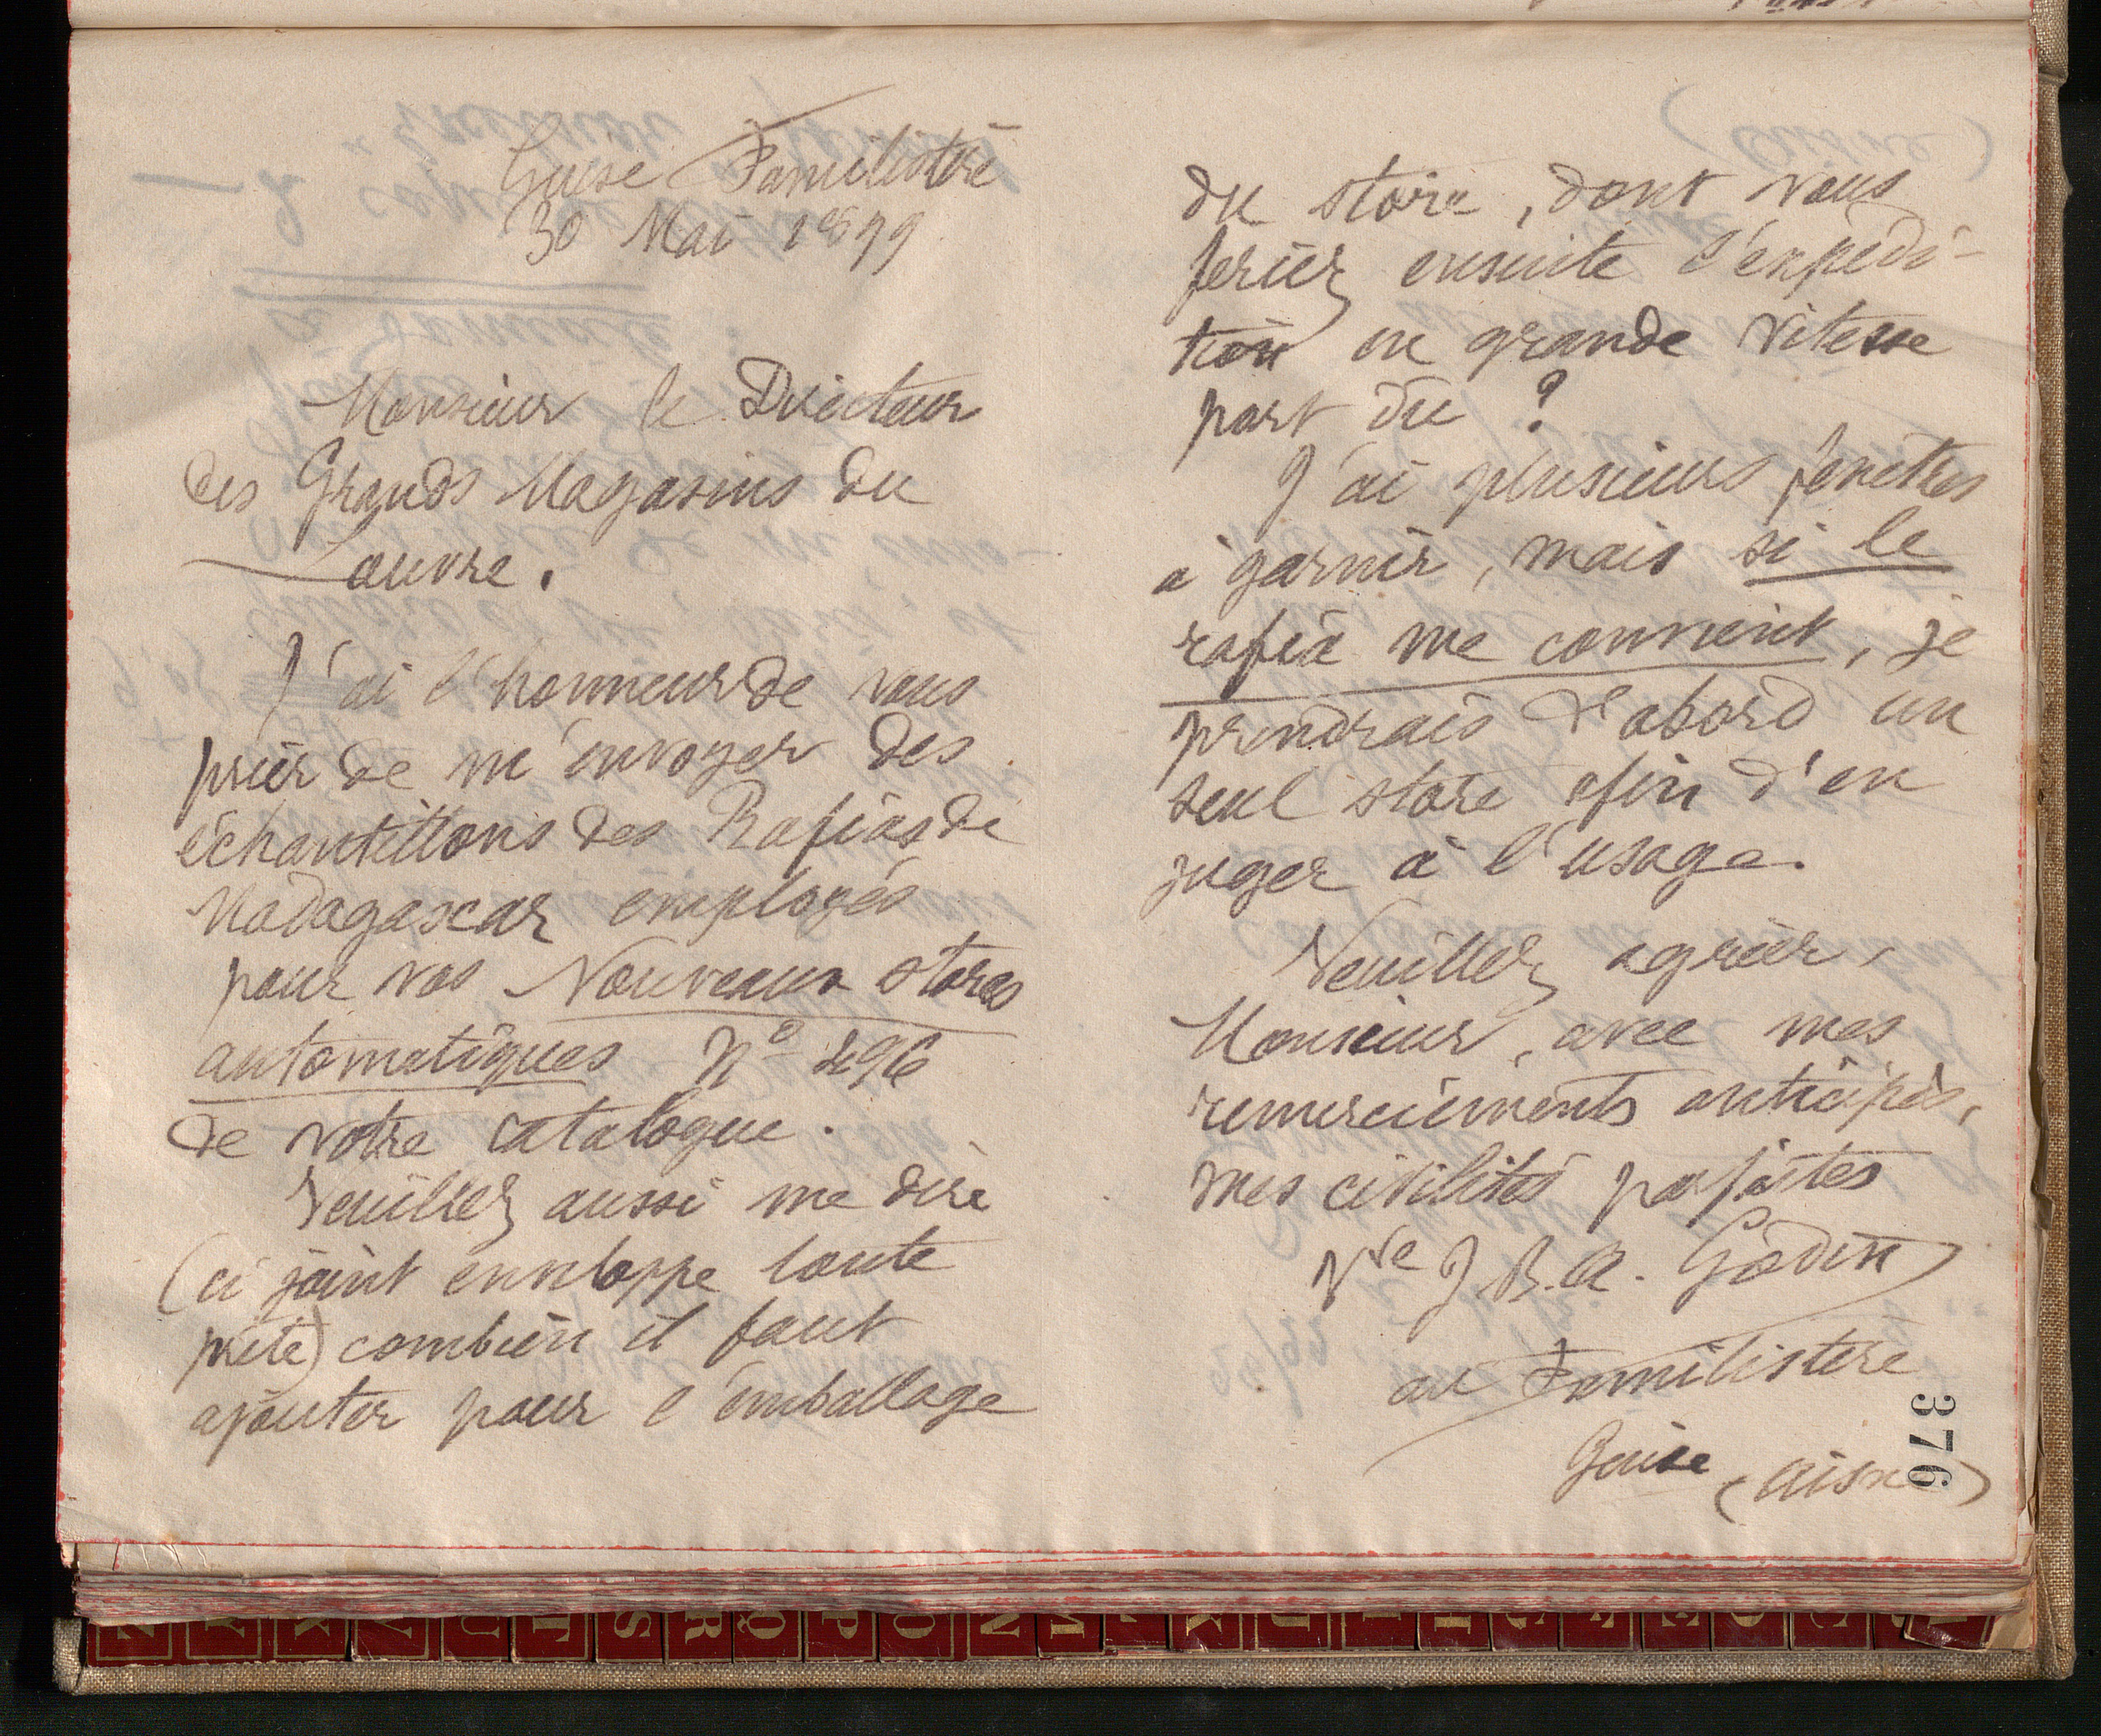 Guise Familistère
30 Mai 1899
Monsieur le Directeur
des Grands Magasins du
Louvre.
J'ai l'honneur de vous
prier de m'envoyer des
échantillons des Rafias de
Madagascar employés
pour vos Nouveaux stores
automatiques No
de votre catalogue.
Veuillez aussi me dire
(ci joint enveloppe toute
prête) combien il faut
ajouter pour l'emballage
du store, dont vous
feriez ensuite l'expédi-
tion en grande vitesse
port dû ?
J'ai plusieurs fenêtres
à garnir, mais si le
rafia me convient, je
prendrais d'abord un
seul store afin d'en
juger à l'usage.
Veuillez agréer,
Monsieur, avec mes
remerciements anticipés,
mes civilités parfaites
Vve J. B. A. Godin
au Familistère
Guise (Aisne)
376
Z Y X V U T S R Q P O N M L K J I H G F E D C